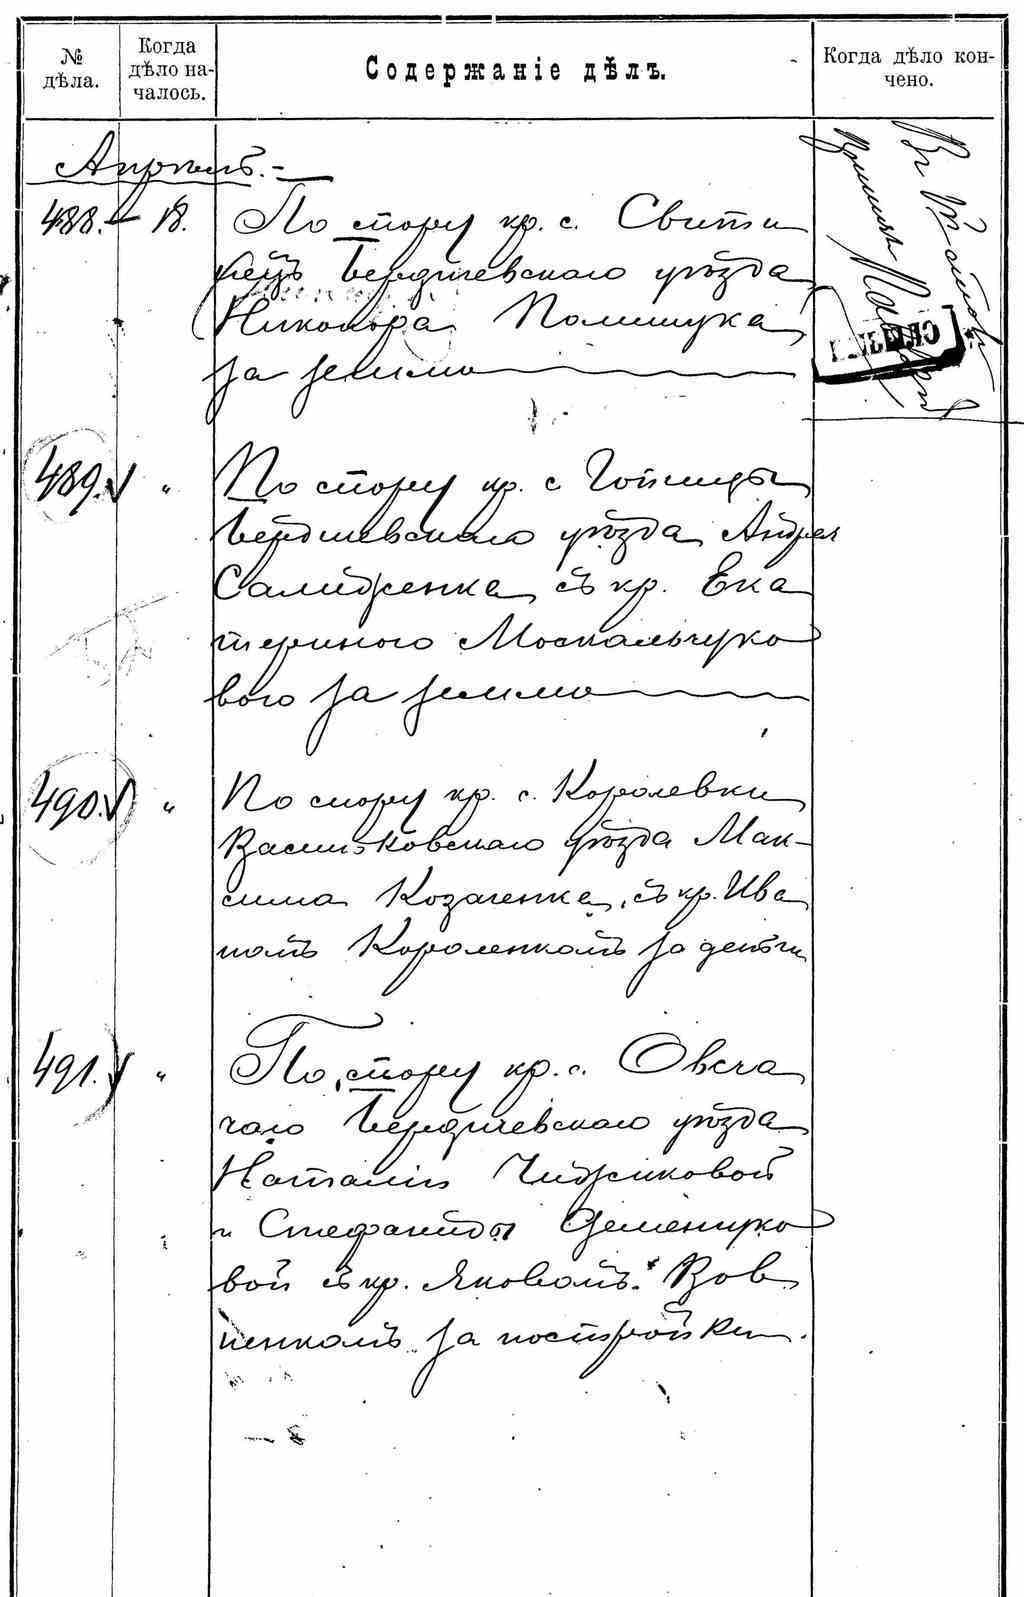 № дѣла.
Когда дѣло на-
чалось.
Содержаніе дѣлъ.
Когда дѣло кон-
чено.
Апрѣль.-
488. - 18. По спору кр. с. Свити
нецъ Бердичевскаго уѣзда
Никонора Полищука
за землю
489. " По спору кр. с
Бердичевскаго уѣзда Андрея
съ кр. Ека
териною Москальчуко
вою за землю
490. " По спору кр. с. Королевки
Васильковскаго уѣзда Мак-
сима Козаченка, съ кр. Ива
номъ Короленкомъ за деньги
491. " По спору кр. с. Овеча
чаго Бердичевскаго уѣзда
Наталіи Чиджиковой
и Стефаниды Семенюко
вой съ кр. Яковомъ Вов
ченкомъ за постройки.